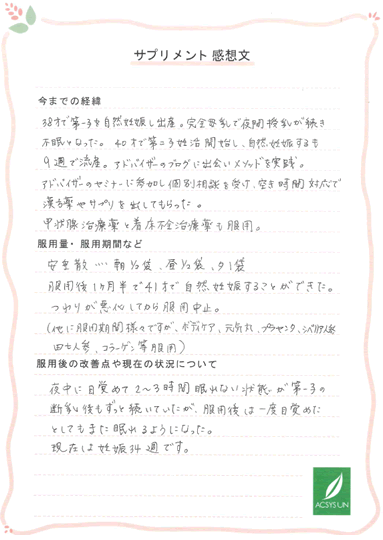 サプリメント 感想文
今までの経緯
38才で第一子を自然妊娠し出産。完全母乳で夜間授乳が続き
不眠となった。40才で第二子妊活開始し、自然妊娠するも
9週で流産。アドバイザーのブログに出会いメソッドを実践。
アドバイザーのセミナーに参加し個別相談を受け、空き時間対応で
漢方薬やサプリを出してもらった。
甲状腺治療薬と着床不全治療薬も服用。
服用量・服用期間など
安全散 ‥‥ 朝1/2袋、昼1/2袋、夕1袋
服用後1ヶ月半で41才で自然妊娠することができた。
つわりが悪化してから服用中止。
(他に服用期間様々ですが、ボディケア、元気丸、プラセンタ、シベリア人参
田七人参、コラーゲン等服用)
服用後の改善点や現在の状況について
夜中に目覚めて2〜3時間眠れない状態が第一子の
断乳後もずっと続いていたが、服用後は一度目覚めた
としてもまた眠れるようになった。
現在は妊娠34週です。
ACSYSUN